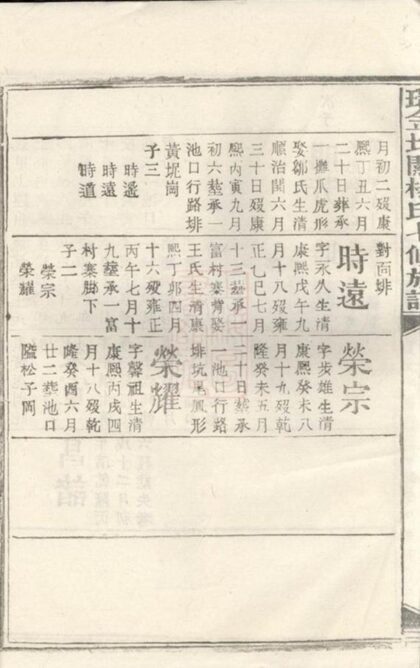 氏七修族譜
月初二歿康
熙丁丑六月
二十日葬承
一攤爪虎形
娶鄒氏生清
順治閏六月
三十日歿康
熙丙寅九月
初六塟承一
池口行路排
黃坭崗
子三 時遙
時遠
時道
對面排
時遠
字永久生清
康熙戊午九
月十八歿雍
正乙巳七月
十三塟承一
富村寨背娶
王氏生清康
熙丁卯四月
十六歿雍正
丙午七月十
九塟承一富
村寨脚下
子二
榮宗
榮耀
榮宗
字步雄生清
康熙癸未八
月十九歿乾
隆癸未五月
二十日塟承
一池口行路
排坑鳳形
榮耀
字馨祖生清
康熙丙戌四
月十八歿乾
隆癸酉六月
廿二塟池口
隘松子岡